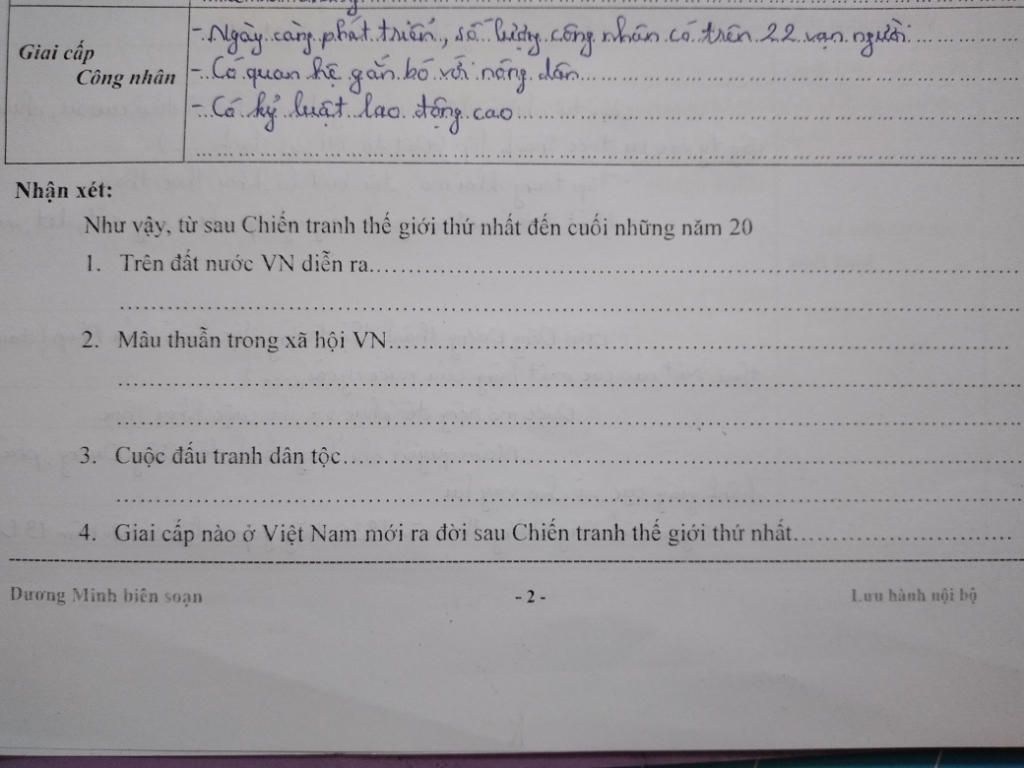 Giai cấp
Công nhân
- Ngày càng phát triển, số lượng công nhân có trên 22 vạn người
- Có quan hệ gắn bó với nông dân
- Có kỷ luật lao động cao
Nhận xét:
Như vậy, từ sau Chiến tranh thế giới thứ nhất đến cuối những năm 20
1. Trên đất nước VN diễn ra
2. Mâu thuẫn trong xã hội VN
3. Cuộc đấu tranh dân tộc
4. Giai cấp nào ở Việt Nam mới ra đời sau Chiến tranh thế giới thứ nhất
Dương Minh biên soạn - 2 - Lưu hành nội bộ